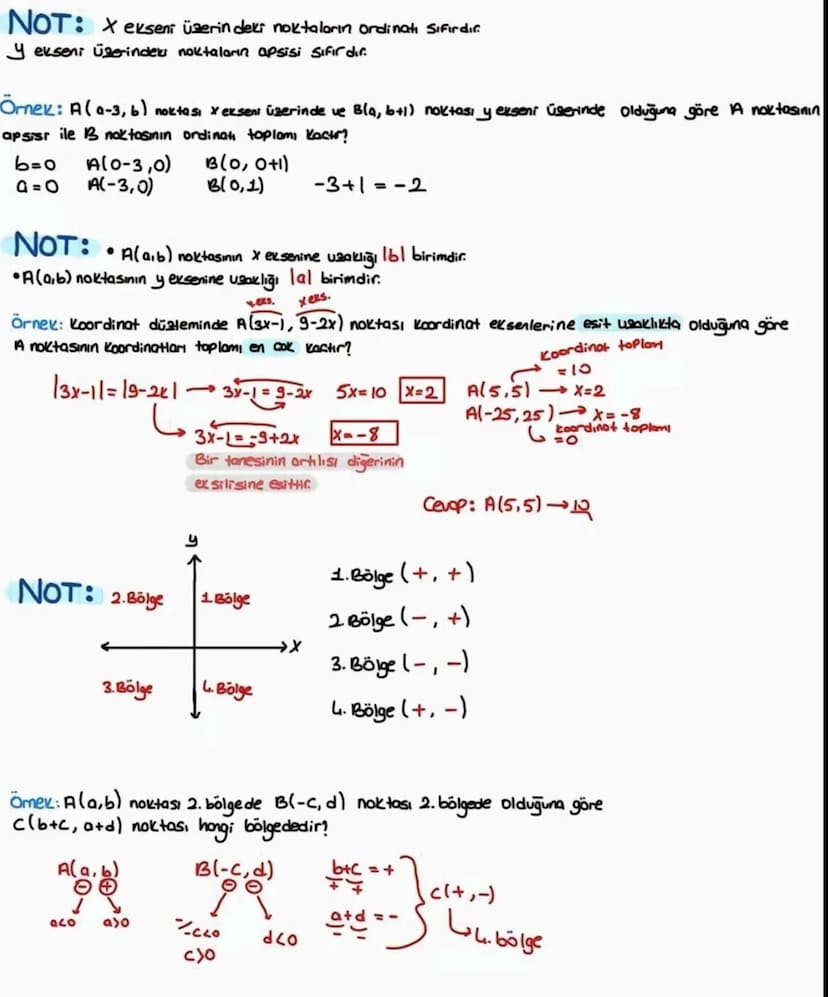 NOT: X ekseni üzerindeki noktaların ordinatı sıfırdır.
y ekseni üzerindeki noktaların apsisi sıfırdır.
Örnek: A(a-3, b) noktası x ekseni üzerinde ve B(a, b+1) noktası y ekseni üzerinde olduğuna göre A noktasının
apsisi ile B noktasının ordinatı toplamı kaçtır?
b=0 A(0-3,0) B(0, 0+1)
a=0 A(-3,0) B(0,1) -3+1 = -2
NOT: • A(a,b) noktasının x eksenine uzaklığı |b| birimdir.
•A(a,b) noktasının y eksenine uzaklığı |a| birimdir.
y eks. x eks.
Örnek: Koordinat düzleminde A(3x-1, 9-2x) noktası koordinat eksenlerine eşit uzaklıkta olduğuna göre
A noktasının koordinatları toplamı en çok kaçtır?
koordinat toplamı
=10
|3x-1|=|9-2x| → 3x-1 = 9-2x 5x=10 x=2 A(5,5) → x=2
A(-25,25) → x=-8
3x-1=-9+2x x=-8 koordinat toplamı
=0
Bir tanesinin artılısı diğerinin
eksilisine eşittir.
Cevap: A(5,5) → 10
y
NOT: 2.Bölge 1.Bölge
x
3.Bölge 4.Bölge
1.Bölge (+, +)
2.Bölge (-, +)
3.Bölge (-, -)
4.Bölge (+, -)
Örnek: A(a,b) noktası 2.bölgede B(-c,d) noktası 2.bölgede olduğuna göre
C(b+c, a+d) noktası hangi bölgededir?
A(a,b) B(-c,d) b+c = +
- + - - + +
C(+,-)
a<0 a>0 -c<0 d<0 a+d = -
- -
c>0
4.bölge